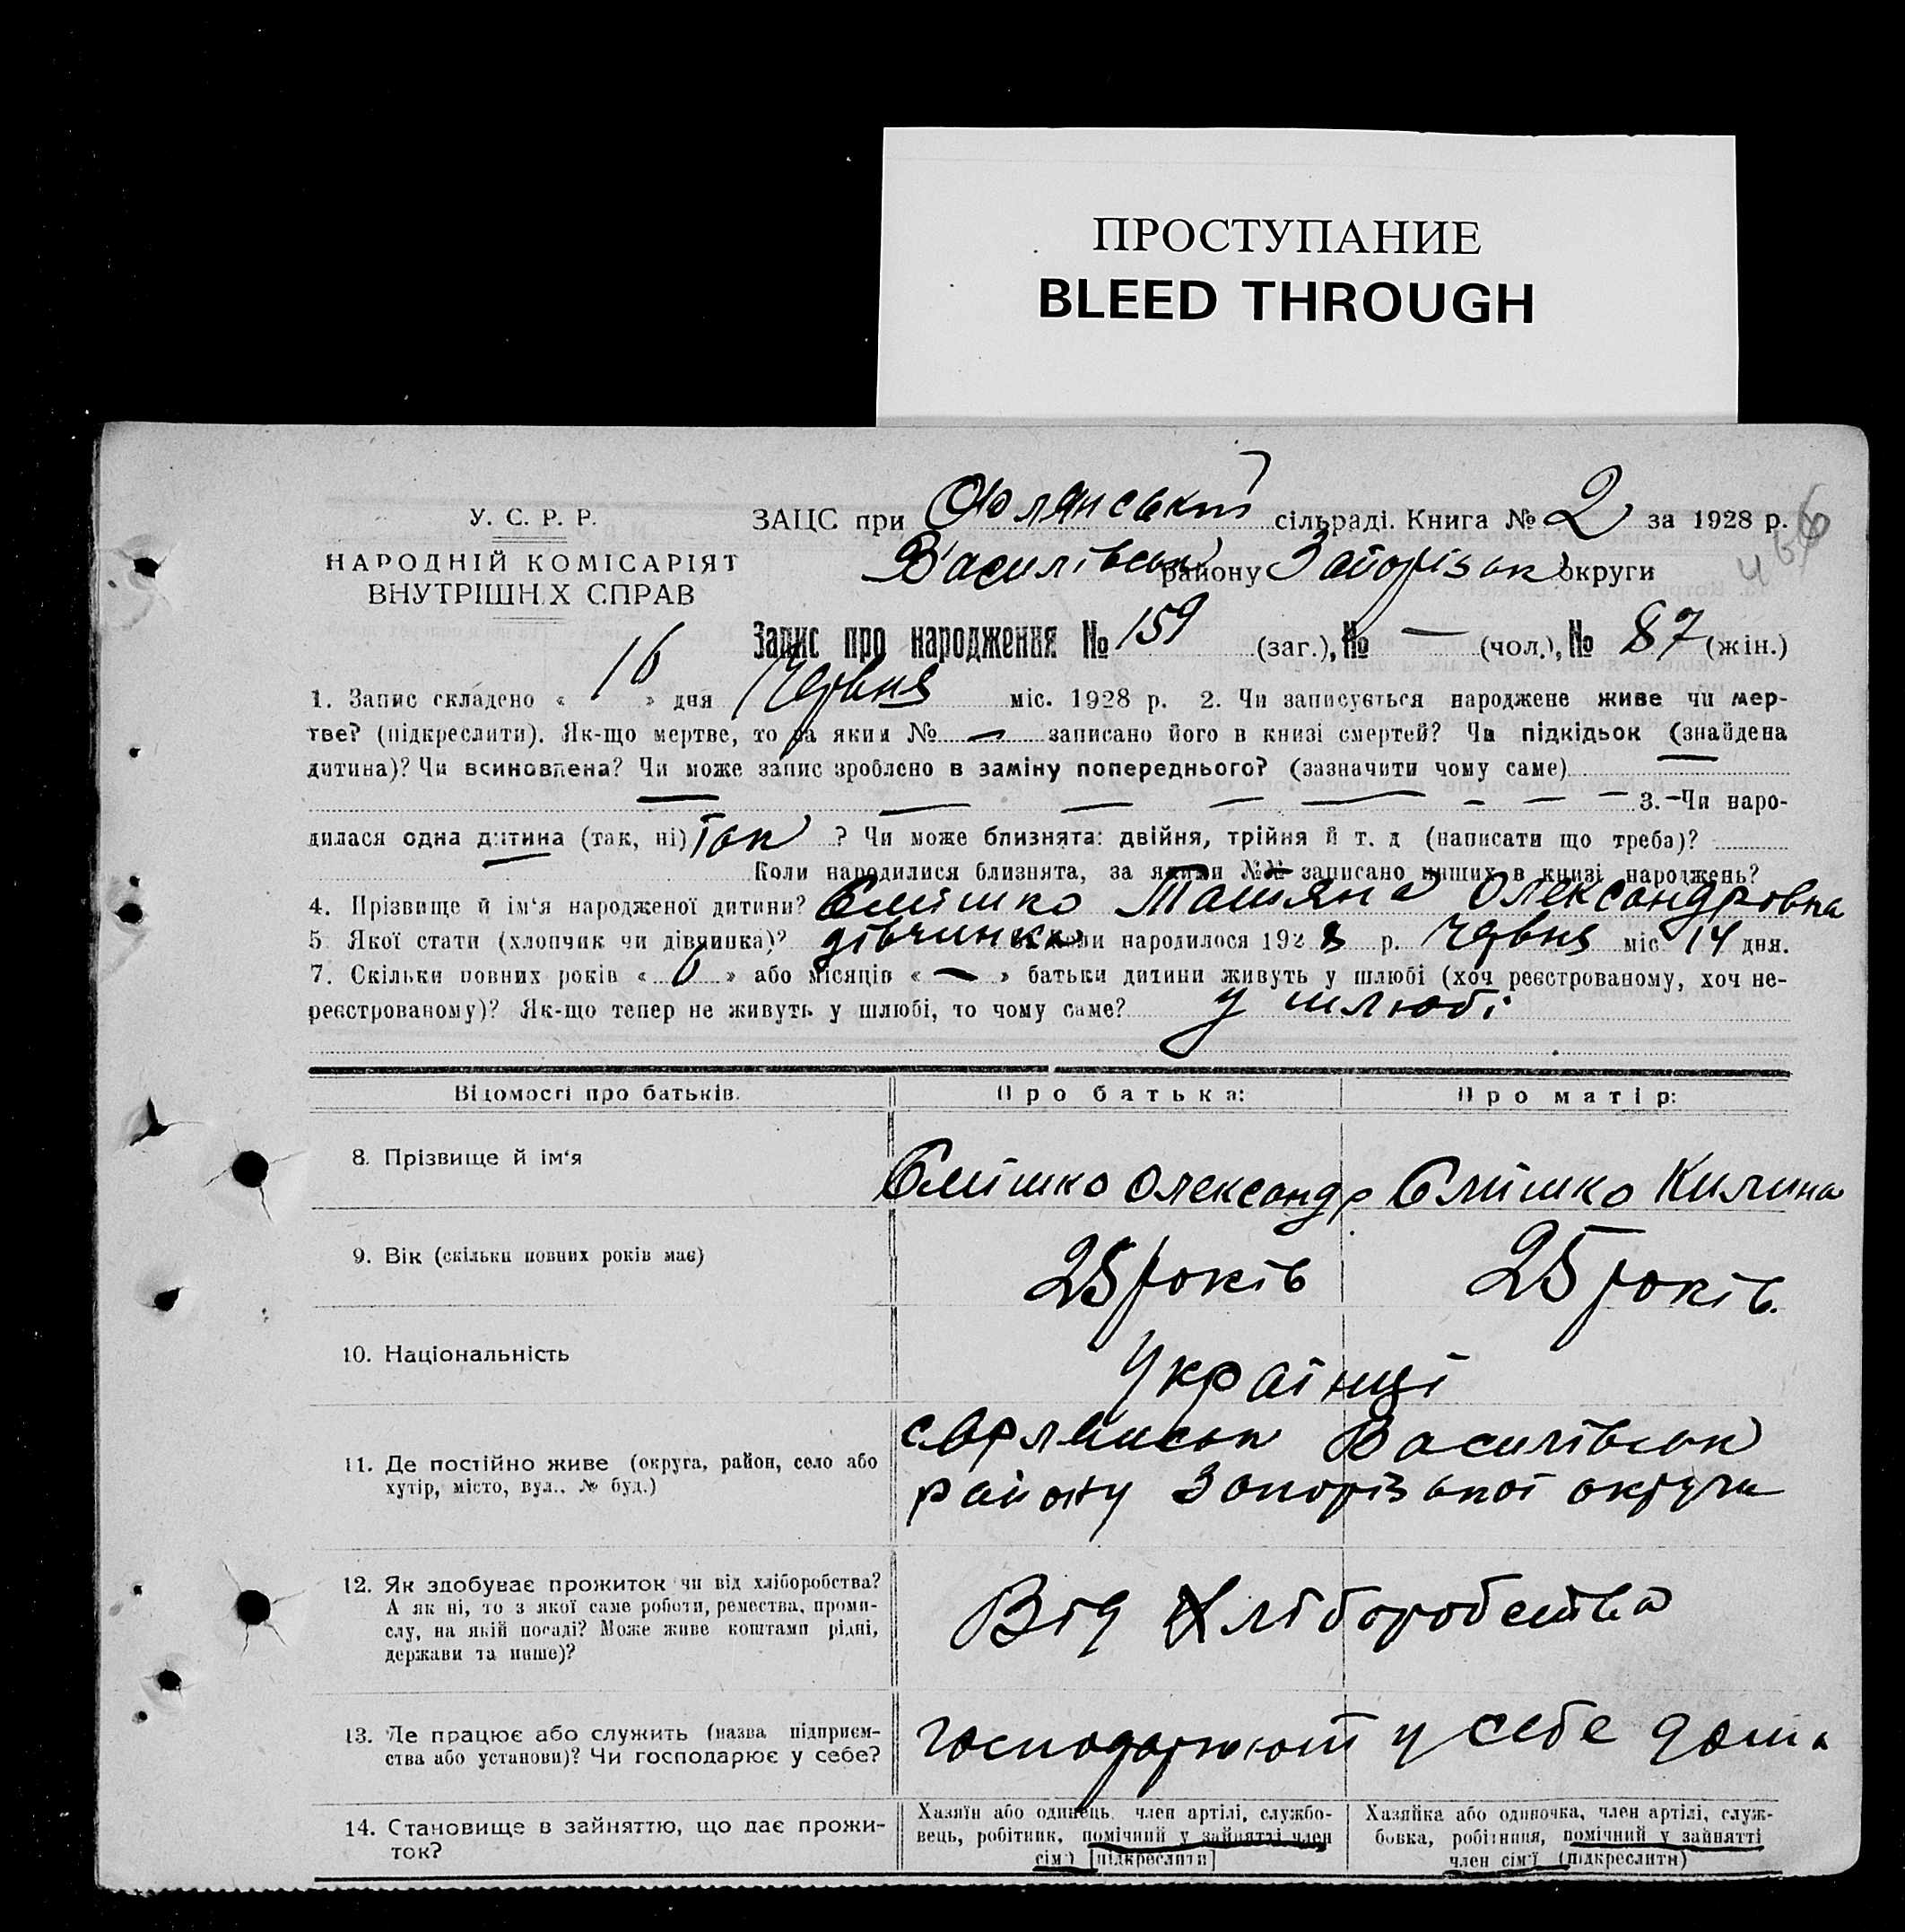 ПРОСТУПАНИЕ
BLEED THROUGH
У. С. Р. Р.
НАРОДНІЙ КОМІСАРІЯТ
ВНУТРІШНІХ СПРАВ
ЗАЦС при сільраді. Книга № 2 за 1928 р.
Василівськ району Запорізьк округи
Запис про народження № 159 (заг.), № — (чол.), № 87 (жін.)
1. Запис складено « 16 » дня Червня міс. 1928 р. 2. Чи записується народжене живе чи мер-
тве? (підкреслити). Як-що мертве, то за яким № — записано його в книзі смертей? Чи підкідьок (знайдена
дитина)? Чи всиновлена? Чи може запис зроблено в заміну попереднього? (зазначити чому саме)
— — — — — — — — 3. Чи наро-
дилася одна дитина (так, ні) Так ? Чи може близнята: двійня, трійня й т. д (написати що треба)?
Коли народилися близнята, за якими №№ записано инших в книзі народжень?
4. Прізвище й ім'я народженої дитини? Татяна Олександровна
5 Якої стати (хлопчик чи дівчинка)? дівчинка Коли народилося 1928 р. Червня міс 14 дня.
7. Скільки повних років « 6 » або місяців « — » батьки дитини живуть у шлюбі (хоч реєстрованому, хоч не-
реєстрованому)? Як-що тепер не живуть у шлюбі, то чому саме? у шлюбі
Відомості про батьків. Про батька: Про матір:
8. Прізвище й ім'я Олександр Килина
9. Вік (скільки повних років має) 25 років 25 років.
10. Національність Українці
11. Де постійно живе (округа, район, село або
хутір, місто, вул., № буд.)
Василівськ
району Запорізької округи
12. Як здобуває прожиток чи від хліборобства?
А як ні, то з якої саме роботи, ремества, проми-
слу, на якій посаді? Може живе коштами рідні,
держави та инше)?
Від Хліборобства
13. Де працює або служить (назва підприєм-
ства або установи)? Чи господарює у себе?
Господарюють у себе дома
14. Становище в зайняттю, що дає прожи-
ток?
Хазяїн або одинець, член артілі, службо-
вець, робітник, помічний у зайнятті член
сім'ї [підкреслити]
Хазяйка або одиночка, член артілі, служ-
бовка, робітниця, помічний у зайнятті
член сім'ї (підкреслити)